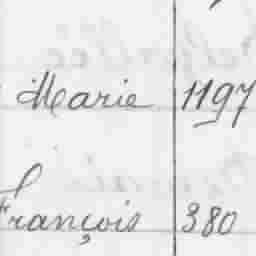 Marie 1197
François 380